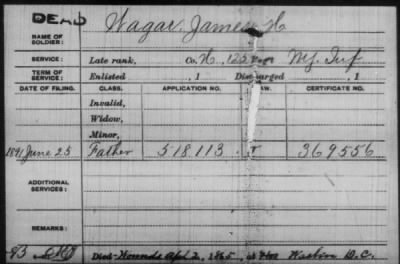 DEAD
NAME OF SOLDIER: Wagar, James H
SERVICE: Late rank, Co. H, 125 Reg't NY. Inf
TERM OF SERVICE: Enlisted , 1 Discharged , 1
DATE OF FILING. CLASS. APPLICATION NO. LAW. CERTIFICATE NO.
Invalid,
Widow,
Minor,
1891 June 25 Father 518.113 369556
ADDITIONAL SERVICES:
REMARKS:
Died Wounds Apl 2, 1865, at Washn D.C.